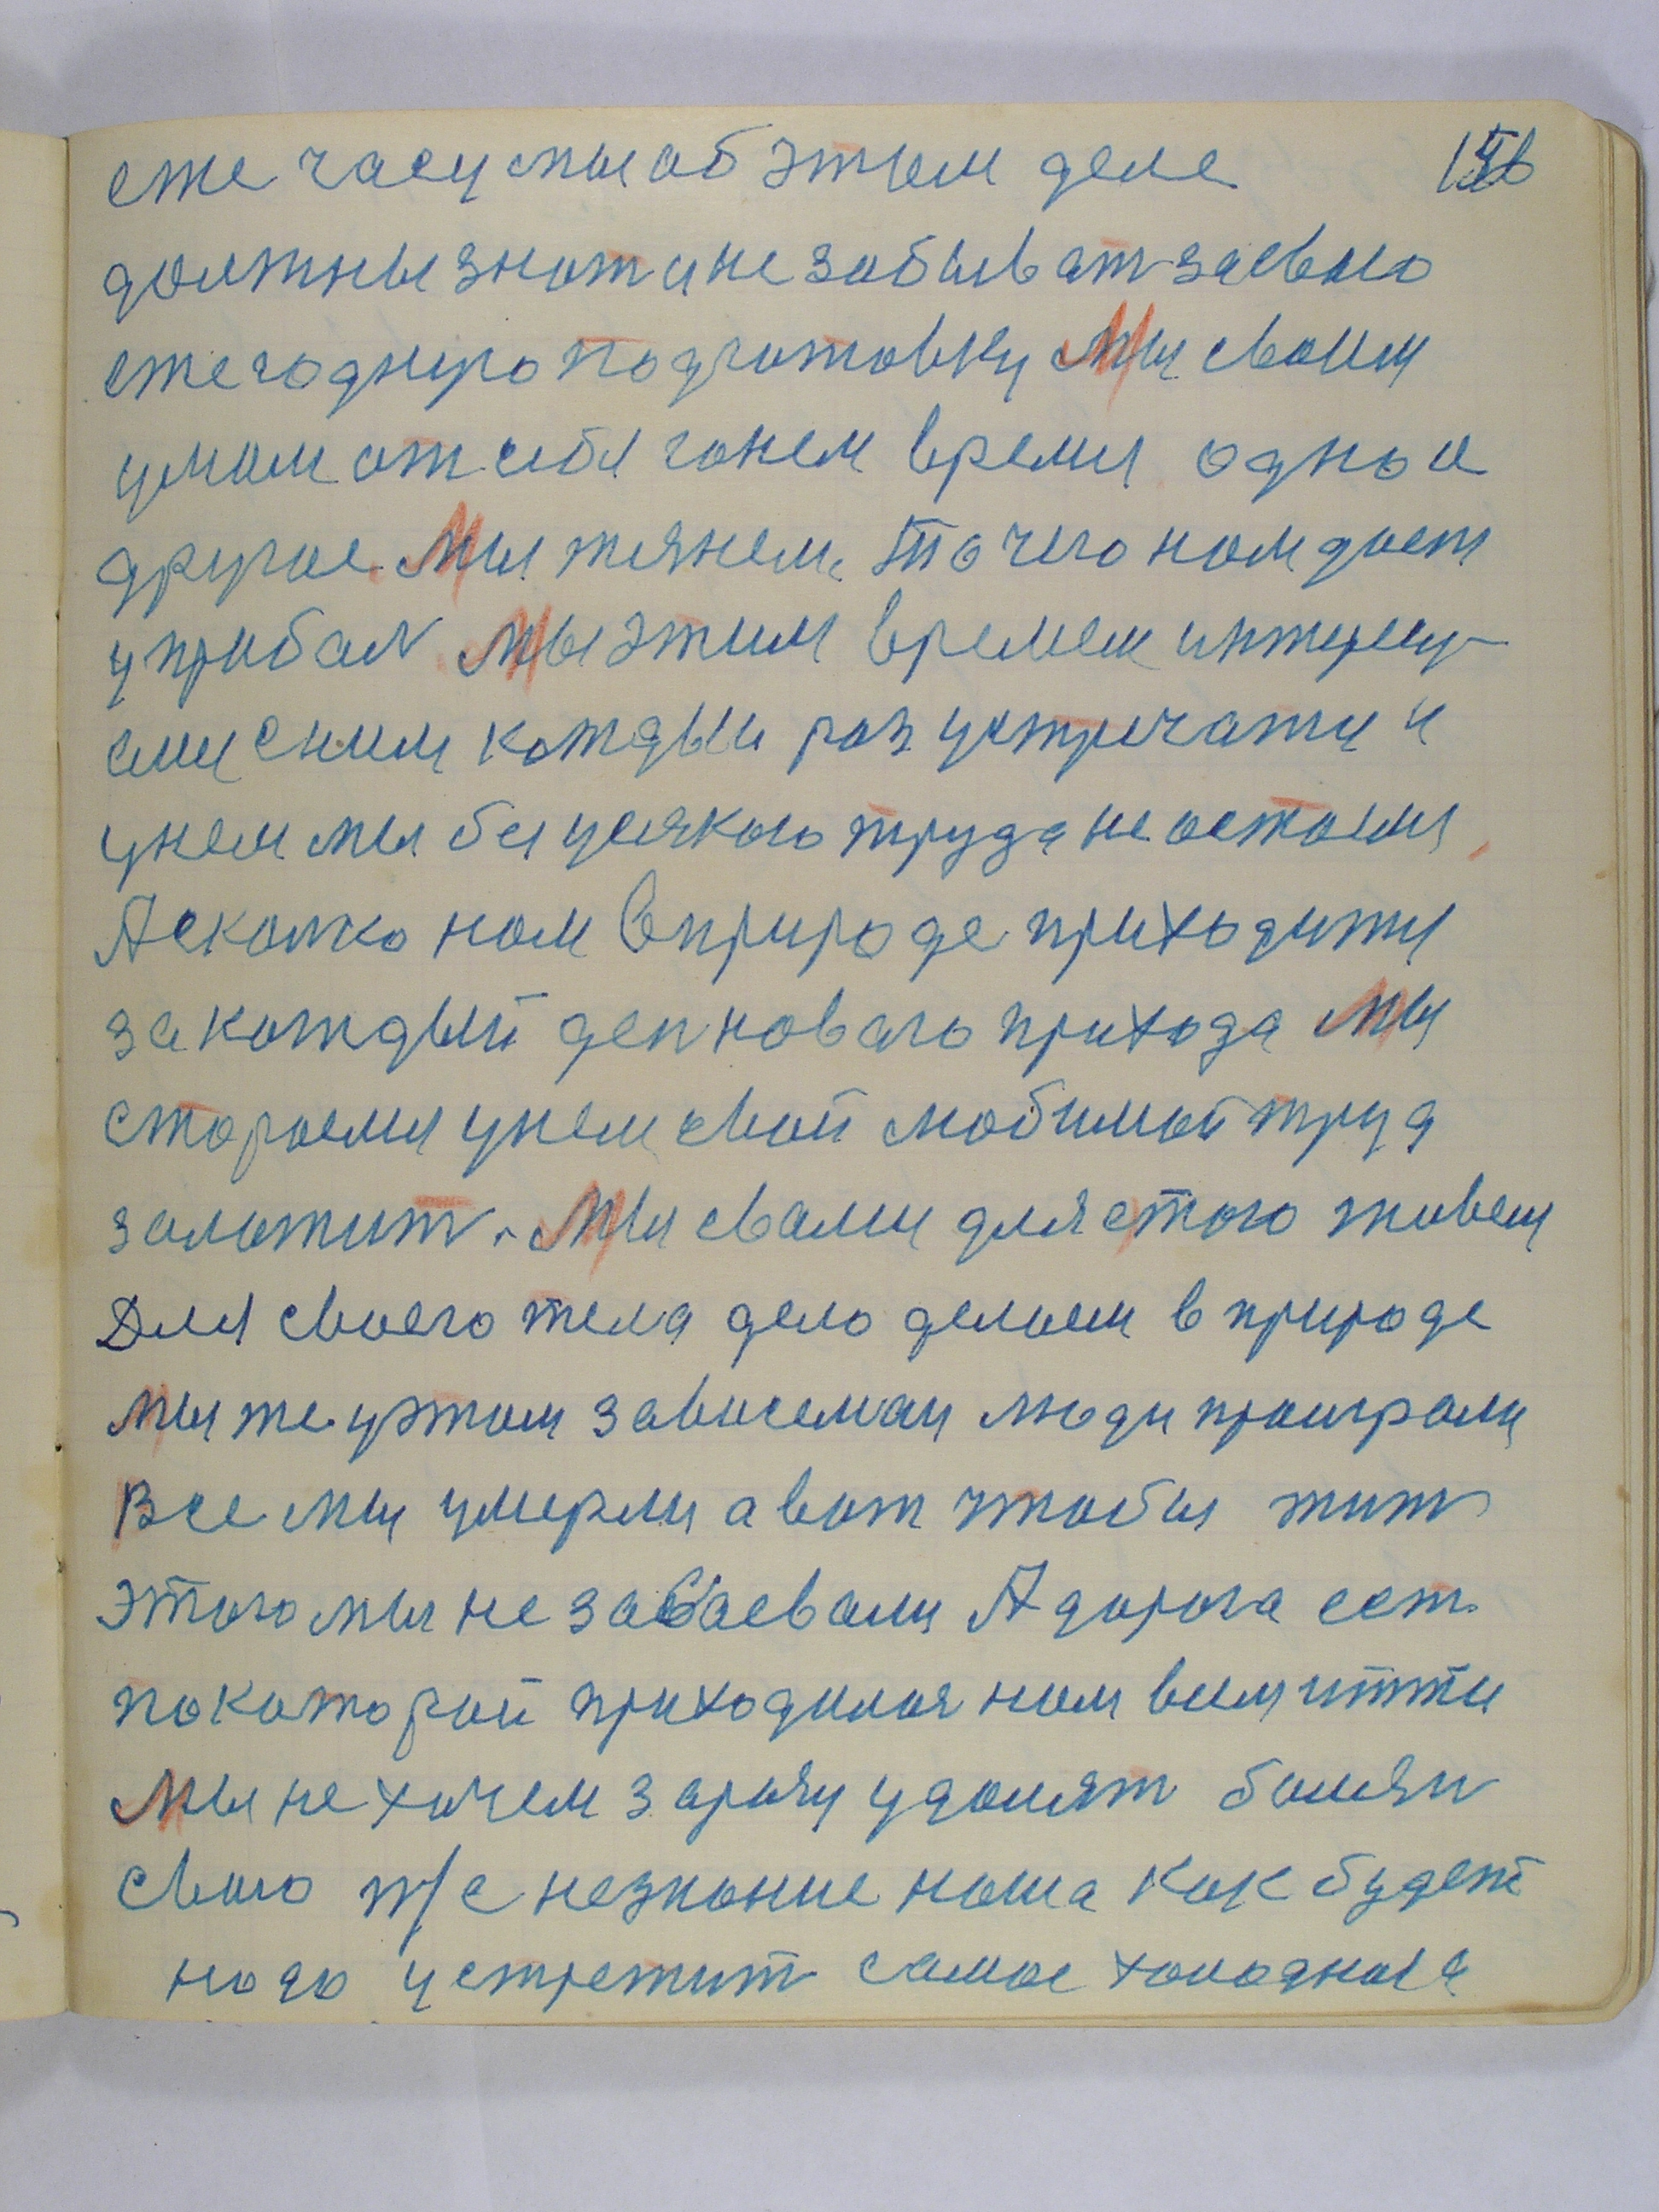 еже часу мы об этим деле 156
должны знат и не забыват за свою
ежегоднуюю подготовку Мы своим
умом от себя гонем время одно а
другое Мы тянем. То чего нам дает
у прибал Мы этим времем интересу-
емси с ним кождыи раз устричатц и
у нем мы без усякого труда не остаемя
А сколко нам в природе приходитця
за кождый ден новаго прихода Мы
стораемя у нем свой любимой труд
заложит. Мы с вами для етого живем
Для своего тела дело делаем в природе
мы же у этом зависемаи люди проиграли
Все мы умерли а вот чтобы жит
этого мы не заваевали А дорога ест
по которой приходилося нам всим итти
Мы не хочем зарачу удолят болязн
свою т/е незнание наша как будет
надо устретит самое холодноя а